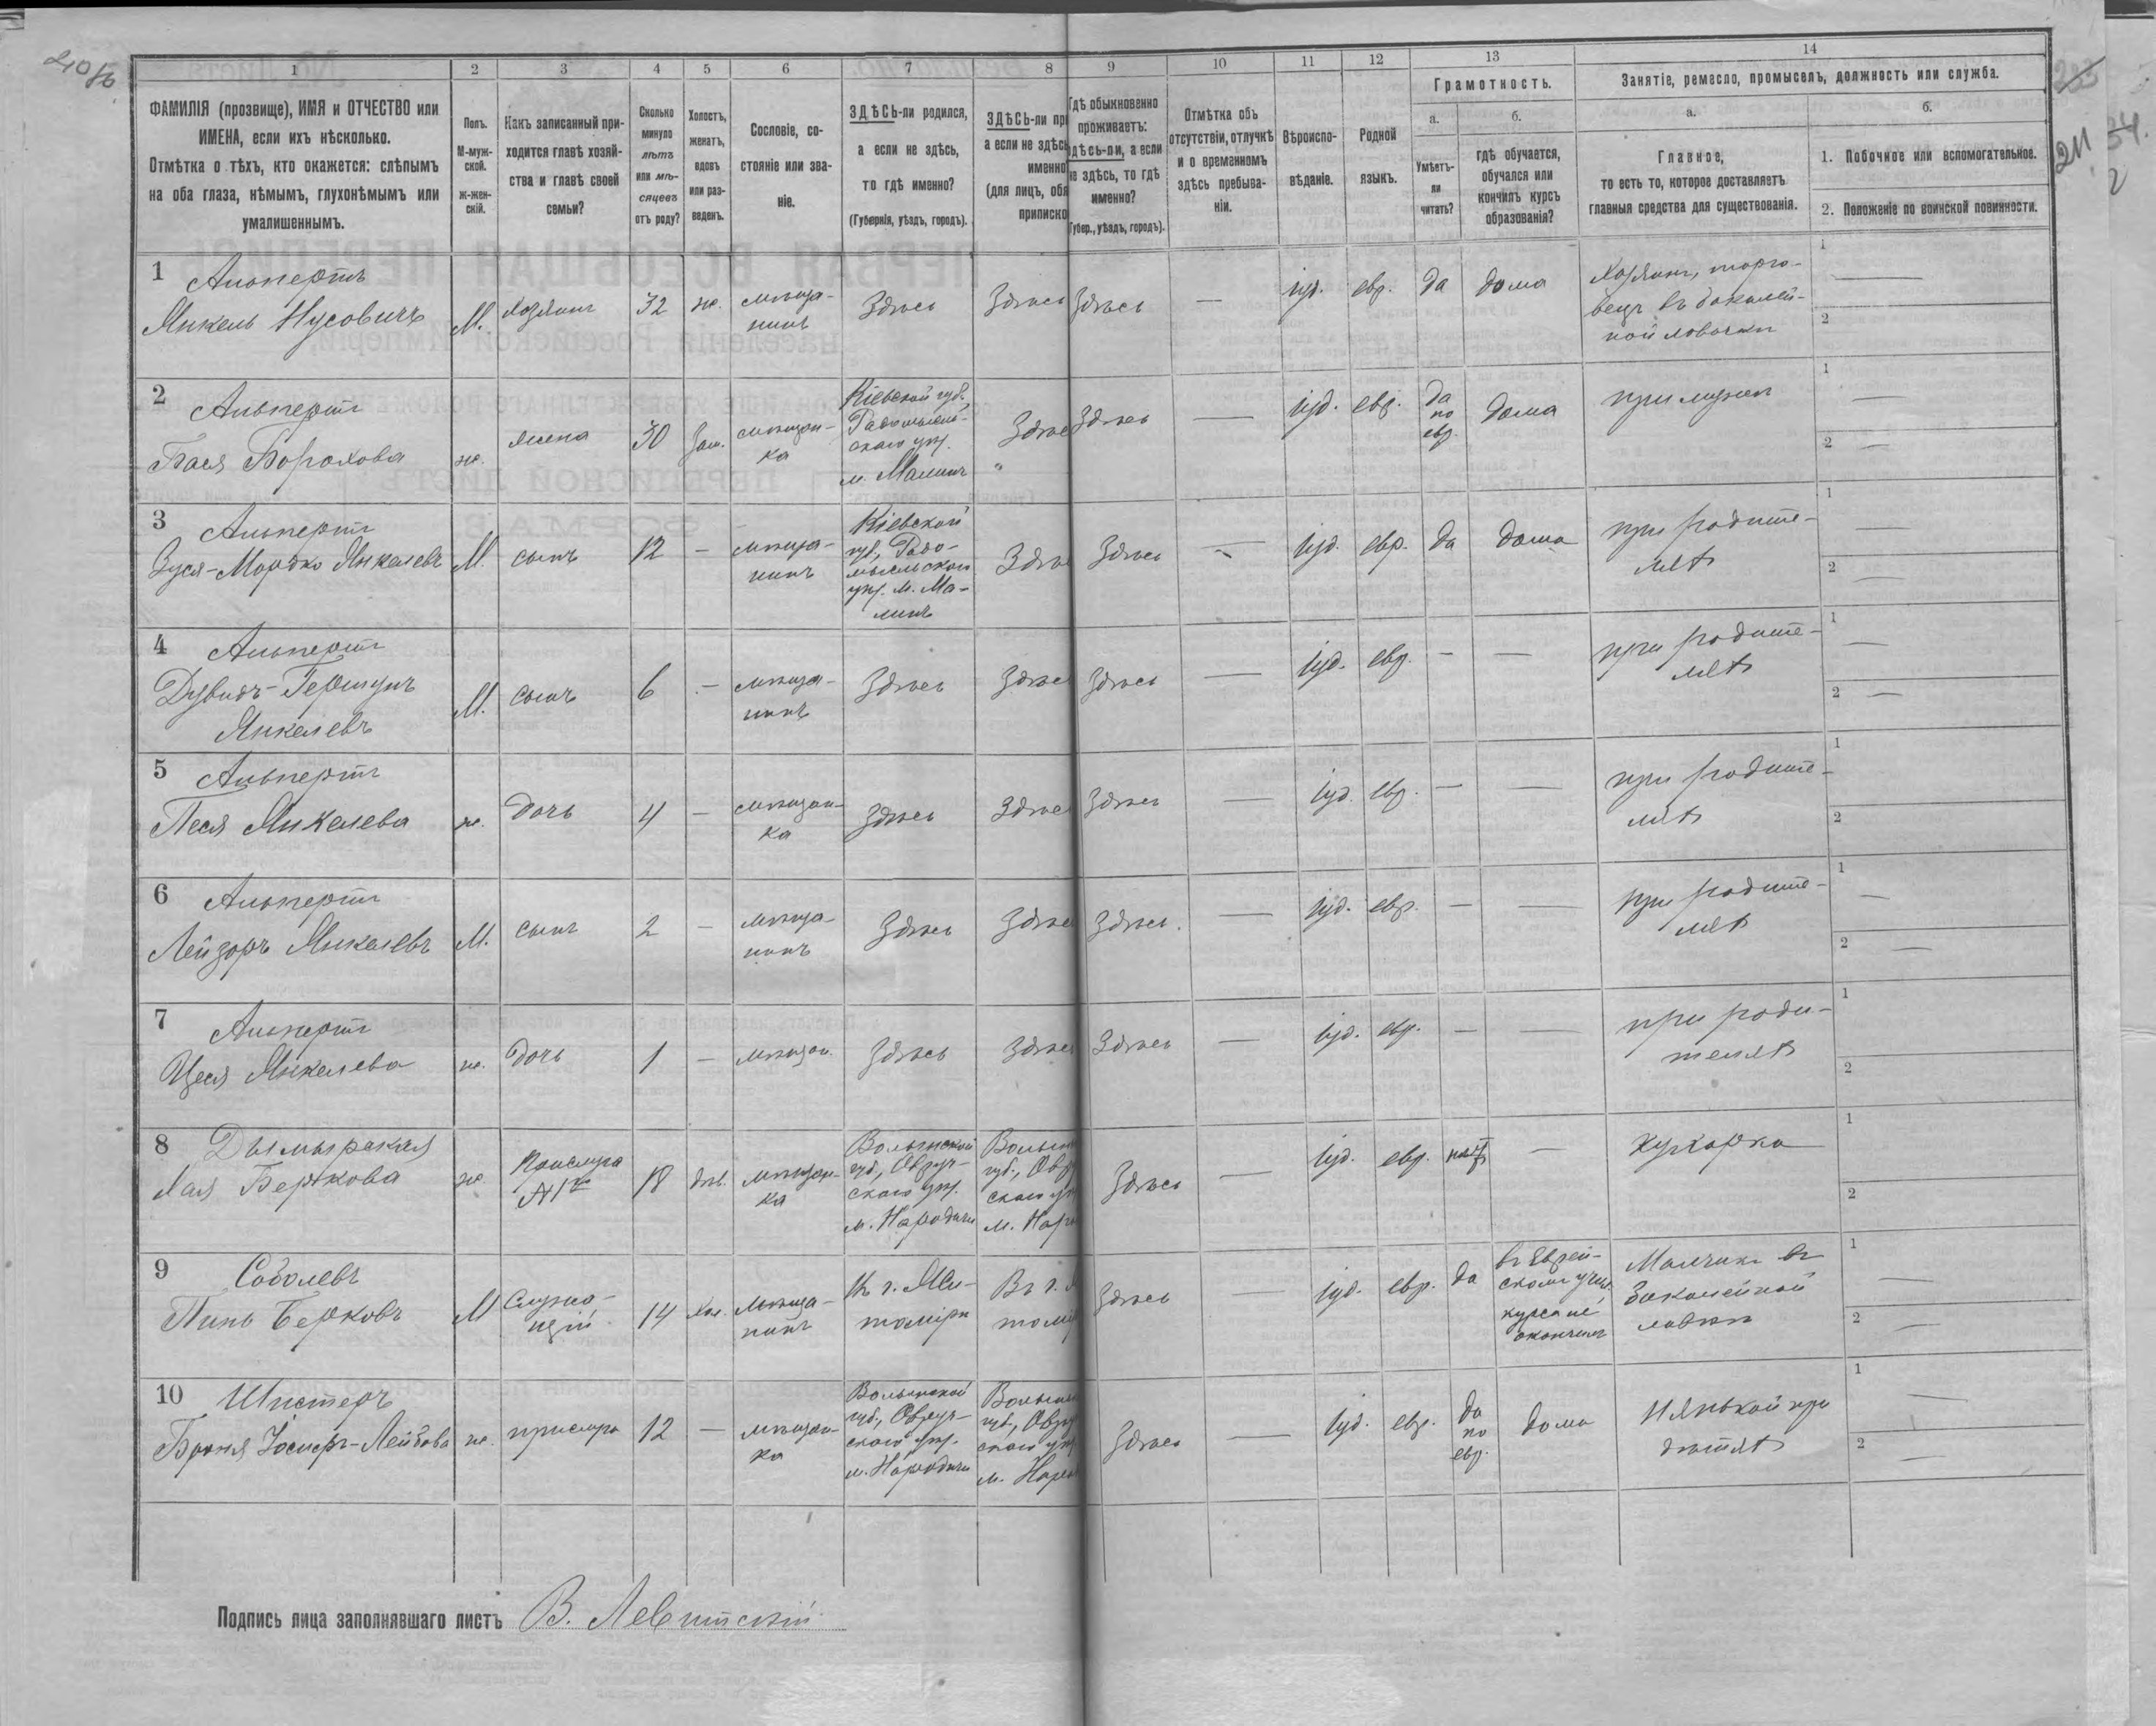 1 2 3 4 5 6 7 8 9 10 11 12 13 14
ФАМИЛІЯ (прозвище), ИМЯ и ОТЧЕСТВО или
ИМЕНА, если ихъ нѣсколько.
Отмѣтка о тѣхъ, кто окажется: слѣпымъ
на оба глаза, нѣмымъ, глухонѣмымъ или
умалишеннымъ.
Полъ.
М-муж-
ской.
ж-жен-
скій.
Какъ записанный при-
ходится главѣ хозяй-
ства и главѣ своей
семьи?
Сколько
минуло
лѣтъ
или мѣ-
сяцевъ
отъ роду?
Холостъ,
женатъ,
вдовъ
или раз-
веденъ.
Сословіе, со-
стояніе или зва-
ніе.
ЗДѢСЬ-ли родился,
а если не здѣсь,
то гдѣ именно?
(Губернія, уѣздъ, городъ).
ЗДѢСЬ-ли при
а если не здѣсь
именно
(для лицъ, обя
приписко
Гдѣ обыкновенно
проживаетъ:
здѣсь-ли, а если
не здѣсь, то гдѣ
именно?
(Губер., уѣздъ, городъ).
Отмѣтка объ
отсутствіи, отлучкѣ
и о временномъ
здѣсь пребыва-
ніи.
Вѣроиспо-
вѣданіе.
Родной
языкъ.
Грамотность.
а.
Умѣетъ-
ли
читать?
б.
гдѣ обучается,
обучался или
кончилъ курсъ
образованія?
Занятіе, ремесло, промыселъ, должность или служба.
а.
Главное,
то есть то, которое доставляетъ
главныя средства для существованія.
б.
1. Побочное или вспомогательное.
2. Положеніе по воинской повинности.
1 Альпертъ
Янкель Нусовичъ
М.
Хозяинъ
32
ж.
мѣща-
нинъ
Здѣсь
Здѣсь
Здѣсь
—
іуд.
евр.
да
дома
Хозяинъ, торго-
вецъ въ бакалей-
ной лавочки
1 —
2
2 Альпертъ
Бася Борохова
ж.
жена
30
Зам.
мѣщан-
ка
Кіевской губ.,
Радомысль-
скаго уѣз.
м. Малинъ
Здѣс
Здѣсь
—
іуд.
евр.
да
по
евр.
дома
при мужѣ
1 —
2 —
3 Альпертъ
Зуся-Мордко Янкелевъ
М.
сынъ
12
—
мѣща-
нинъ
Кіевской
губ., Радо-
мысльскаго
уѣз. м. Ма-
линъ
Здѣс
Здѣсь
—
іуд.
евр.
да
дома
при родите-
ляхъ
1 —
2 —
4 Альпертъ
Дувидъ-Гершунъ
Янкелевъ
М.
сынъ
6
—
мѣща-
нинъ
Здѣсь
Здѣс
Здѣсь
—
іуд.
евр.
—
—
при родите-
ляхъ
1 —
2 —
5 Альпертъ
Песя Янкелева
ж.
дочь
4
—
мѣщан-
ка
Здѣсь
Здѣс
Здѣсь
—
іуд.
евр.
—
—
при родите-
ляхъ
1
2
6 Альпертъ
Лейзоръ Янкелевъ
М.
сынъ
2
—
мѣща-
нинъ
Здѣсь
Здѣс
Здѣсь.
—
іуд.
евр.
—
—
при родите-
ляхъ
1 —
2 —
7 Альпертъ
Цеся Янкелева
ж.
дочь
1
—
мѣщан.
Здѣсь
Здѣс
Здѣсь
—
іуд.
евр.
—
—
при роди-
теляхъ
1
2
8
Хая Беркова
ж
Прислуга
18
дѣв.
мѣщан-
ка
Волынской
губ., Овруч-
скаго уѣз.
м. Народичи
Волын
губ., Овр
скаго уѣ
м. Наро
Здѣсь
—
іуд.
евр.
нѣтъ
—
кухарка
1
2
9 Соболевъ
Пинь Берковъ
М
Служа-
щій
14
Хол.
мѣща-
нинъ
Въ г. Жи-
томірѣ
Въ г. Ж
томір
Здѣсь
—
іуд.
евр.
да
въ Еврей-
скомъ учил.
курса не
окончилъ
Мальчикъ въ
бакалейной
лавкѣ
1 —
2 —
10 Шпстеръ
Броня Іосифъ-Лейбова
ж.
прислуга
12
—
мѣщан-
ка
Волынской
губ., Овруч-
скаго уѣз.
м. Народичи
Волын
губ., Овру
скаго уѣз
м. Наро
Здѣсь
—
іуд.
евр.
да
по
евр.
дома
Нянькой при
дѣтяхъ
1 —
2 —
Подпись лица заполнявшаго листъ В. Левитскій